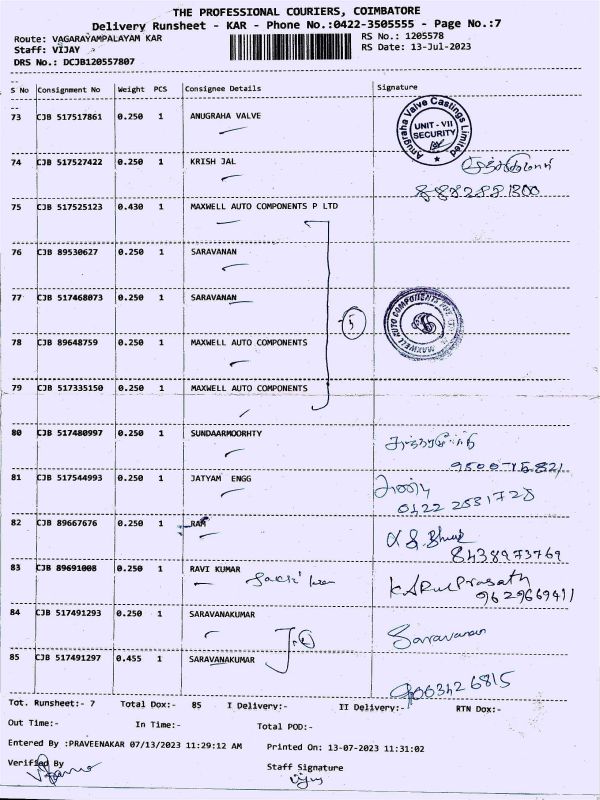 THE PROFESSIONAL COURIERS, COIMBATORE
Delivery Runsheet - KAR - Phone No.:0422-3505555 - Page No.:7
Route: VAGARAYAMPALAYAM KAR RS No.: 1205578
Staff: VIJAY RS Date: 13-Jul-2023
DRS No.: DCJB120557807
S No Consignment No Weight PCS Consignee Details Signature
73 CJB 517517861 0.250 1 ANUGRAHA VALVE
Anugraha Valve Castings Limited
UNIT - VII
SECURITY
74 CJB 517527422 0.250 1 KRISH JAL
75 CJB 517525123 0.430 1 MAXWELL AUTO COMPONENTS P LTD
76 CJB 89530627 0.250 1 SARAVANAN
77 CJB 517468073 0.250 1 SARAVANAN
5
78 CJB 89648759 0.250 1 MAXWELL AUTO COMPONENTS
79 CJB 517335150 0.250 1 MAXWELL AUTO COMPONENTS
80 CJB 517480997 0.250 1 SUNDAARMOORHTY
81 CJB 517544993 0.250 1 JATYAM ENGG
0422 2531728
82 CJB 89667676 0.250 1 RAM
8438973769
83 CJB 89691008 0.250 1 RAVI KUMAR
K ARul Prasath
9629669411
84 CJB 517491293 0.250 1 SARAVANAKUMAR
Saravanan
85 CJB 517491297 0.455 1 SARAVANAKUMAR
9063426815
Tot. Runsheet:- 7 Total Dox:- 85 I Delivery:- II Delivery:- RTN Dox:-
Out Time:- In Time:- Total POD:-
Entered By :PRAVEENAKAR 07/13/2023 11:29:12 AM Printed On: 13-07-2023 11:31:02
Verified By Staff Signature